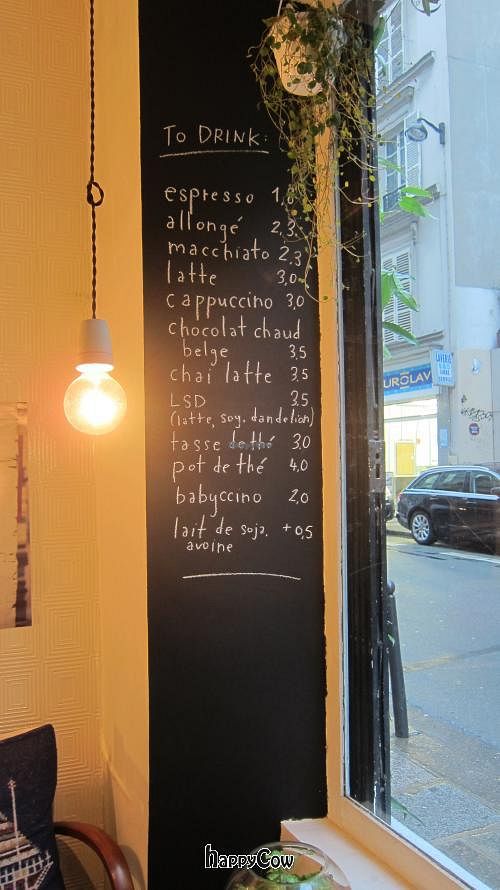 TO DRINK:
espresso
allongé 2,3
macchiato 2,3
latte 3,0
cappuccino 3,0
chocolat chaud
belge 3,5
chai latte 3,5
LSD 3,5
(latte, soy, dandelion)
tasse de thé 3,0
pot de thé 4,0
babyccino 2,0
lait de soja, +0,5
avoine
LAVERIE
UROLAV
HappyCow